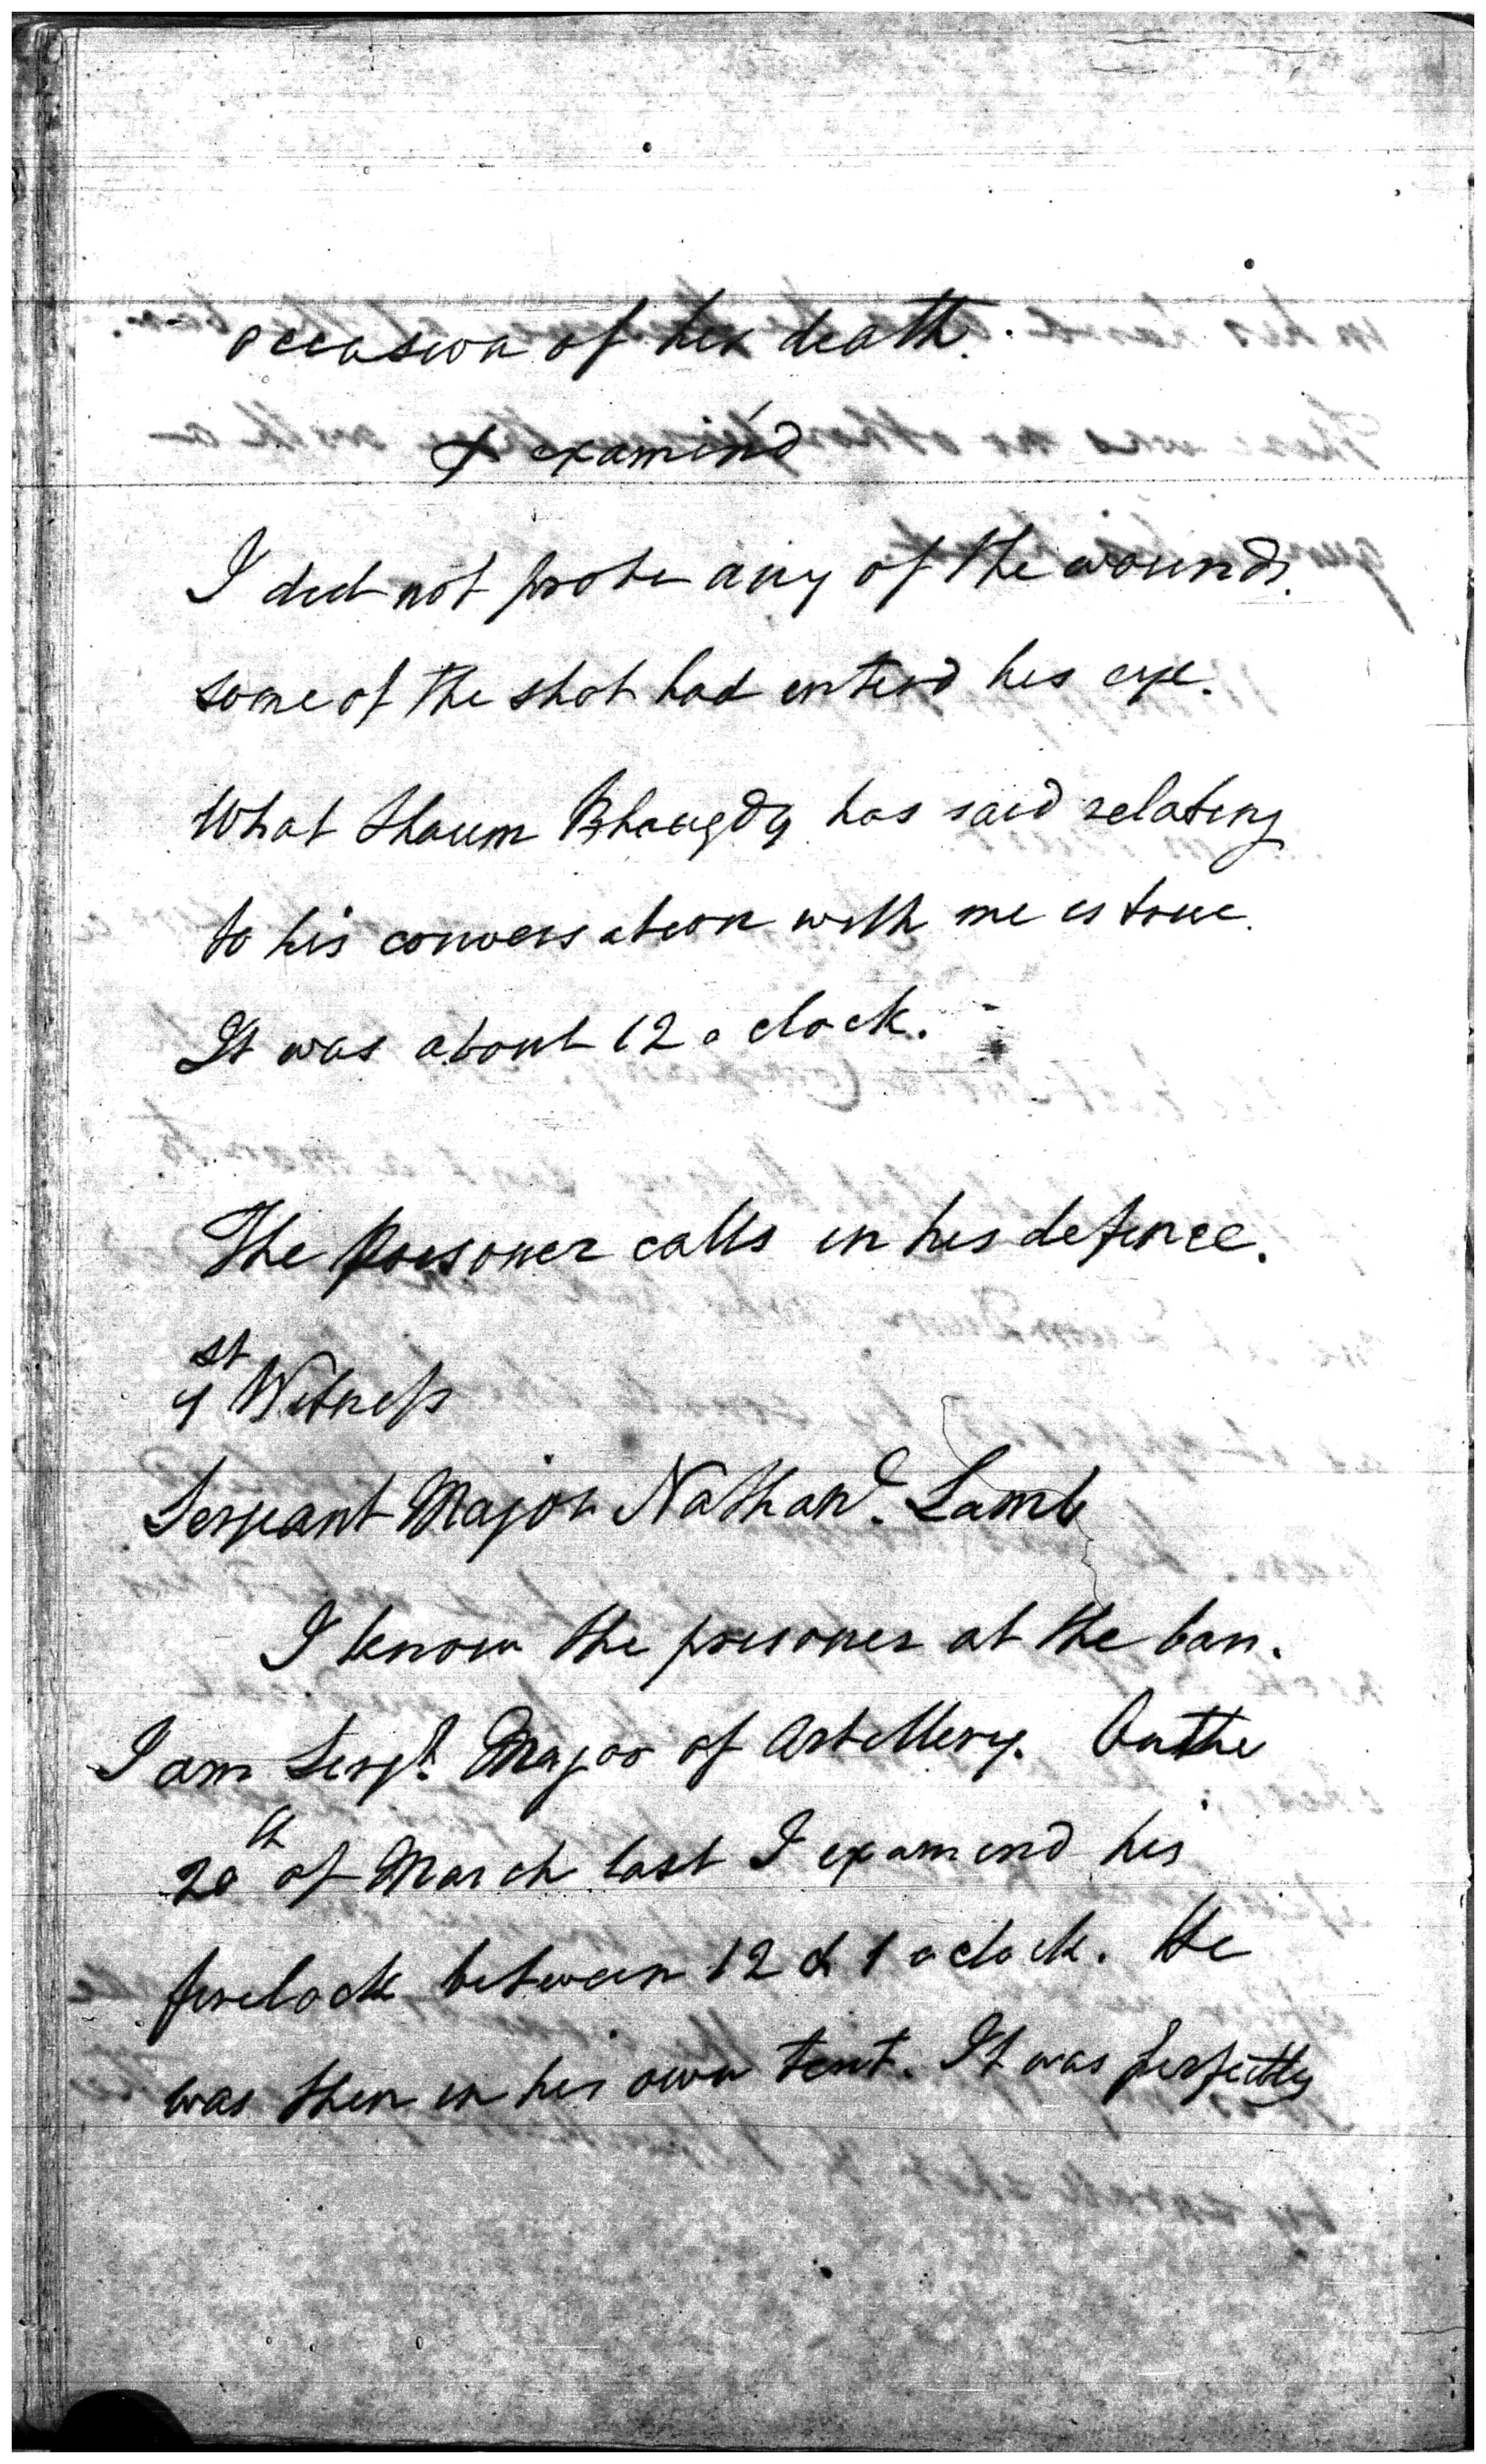 occasion of his death.
X examin'd
I did not probe any of the wounds.
some of the shot had enterd his eye.
What Shaum Bhaugdy has said relating
to his conversation with me is true.
It was about 12 o clock.
The prisoner calls in his defence.
1st Witness
Serjeant Major Nathanl. Lamb
I know the prisoner at the bar.
I am Serjt. Major of Artillery. On the
20th of March last I examend his
firelock between 12 & 1 o clock. He
was then in his own tent. It was perfectly